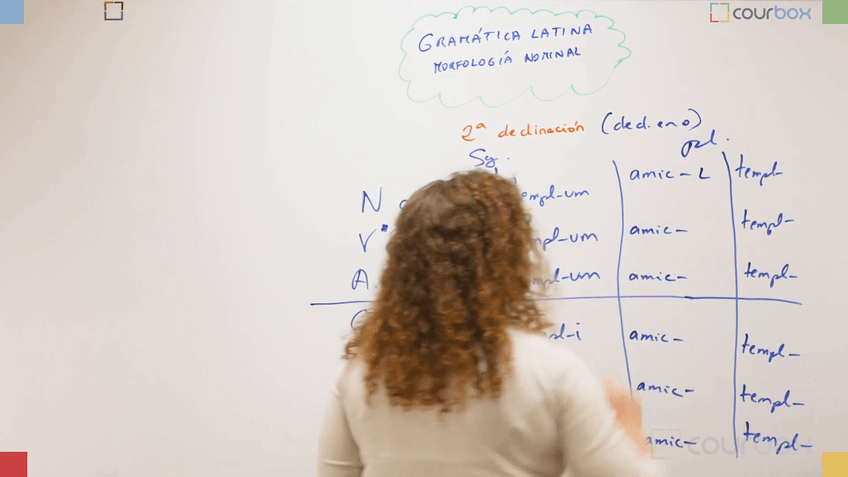 courbox
GRAMÁTICA LATINA
MORFOLOGÍA NOMINAL
2ª declinación (decl. en o)
Sg. pl.
N templ-um amic- templ-
V templ-um amic- templ-
A. templ-um amic- templ-
G templ-i amic- templ-
amic- templ-
amic- templ-
courbox